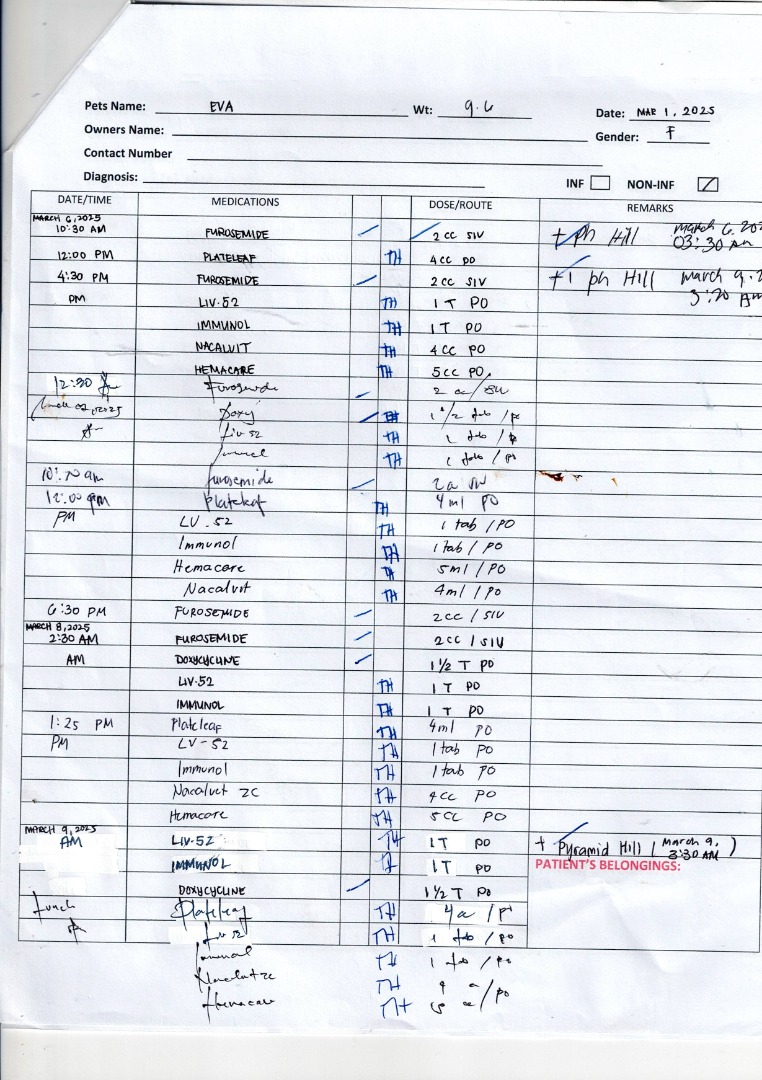 Pets Name: EVA Wt: 9.6 Date: MAR 1, 2025
Owners Name:
Gender: F
Contact Number
Diagnosis:
INF NON-INF
DATE/TIME MEDICATIONS DOSE/ROUTE REMARKS
MARCH 6, 2025
10:30 AM FUROSEMIDE 2 cc SIV + ph Hill March 6, 202
03:30 AM
12:00 PM PLATELEAF TH 4 cc PO
4:30 PM FUROSEMIDE 2 cc SIV +1 ph Hill march 9, 2
3:30 AM
PM LIV.52 TH 1 T PO
IMMUNOL TH 1 T PO
NACALVIT TH 4 cc PO
HEMACARE TH 5 cc PO
12:30 Furosemide 2 cc/SIV
Doxy TH 1 1/2 tab / po
Liv 52 TH 1 tab / po
TH 1 tab / po
10:30 am furosemide
12:00 pm Plateleaf TH 4 ml PO
PM LV.52 TH 1 tab / PO
Immunol TH 1 tab / PO
Hemacare TH 5 ml / PO
Nacalvit TH 4 ml / PO
6:30 PM FUROSEMIDE 2cc / SIV
MARCH 8, 2025
2:30 AM FUROSEMIDE 2cc / SIV
AM DOXYCYCLINE 1 1/2 T PO
LIV.52 TH 1 T PO
IMMUNOL TH 1 T PO
1:25 PM Plateleaf TH 4 ml PO
PM LV-52 TH 1 tab PO
Immunol TH 1 tab PO
Nacalvit ZC TH 4 cc PO
Hemacare TH 5 cc PO
MARCH 9, 2025
AM LIV.52 TH 1 T PO + Pyramid Hill ( March 9,
3:30 AM )
IMMUNOL 1 T PO PATIENT'S BELONGINGS:
DOXYCYCLINE 1 1/2 T PO
Lunch Plateleaf TH
Liv 52 TH 1 tab / po
TH 1 tab / po
TH
Hemacare TH